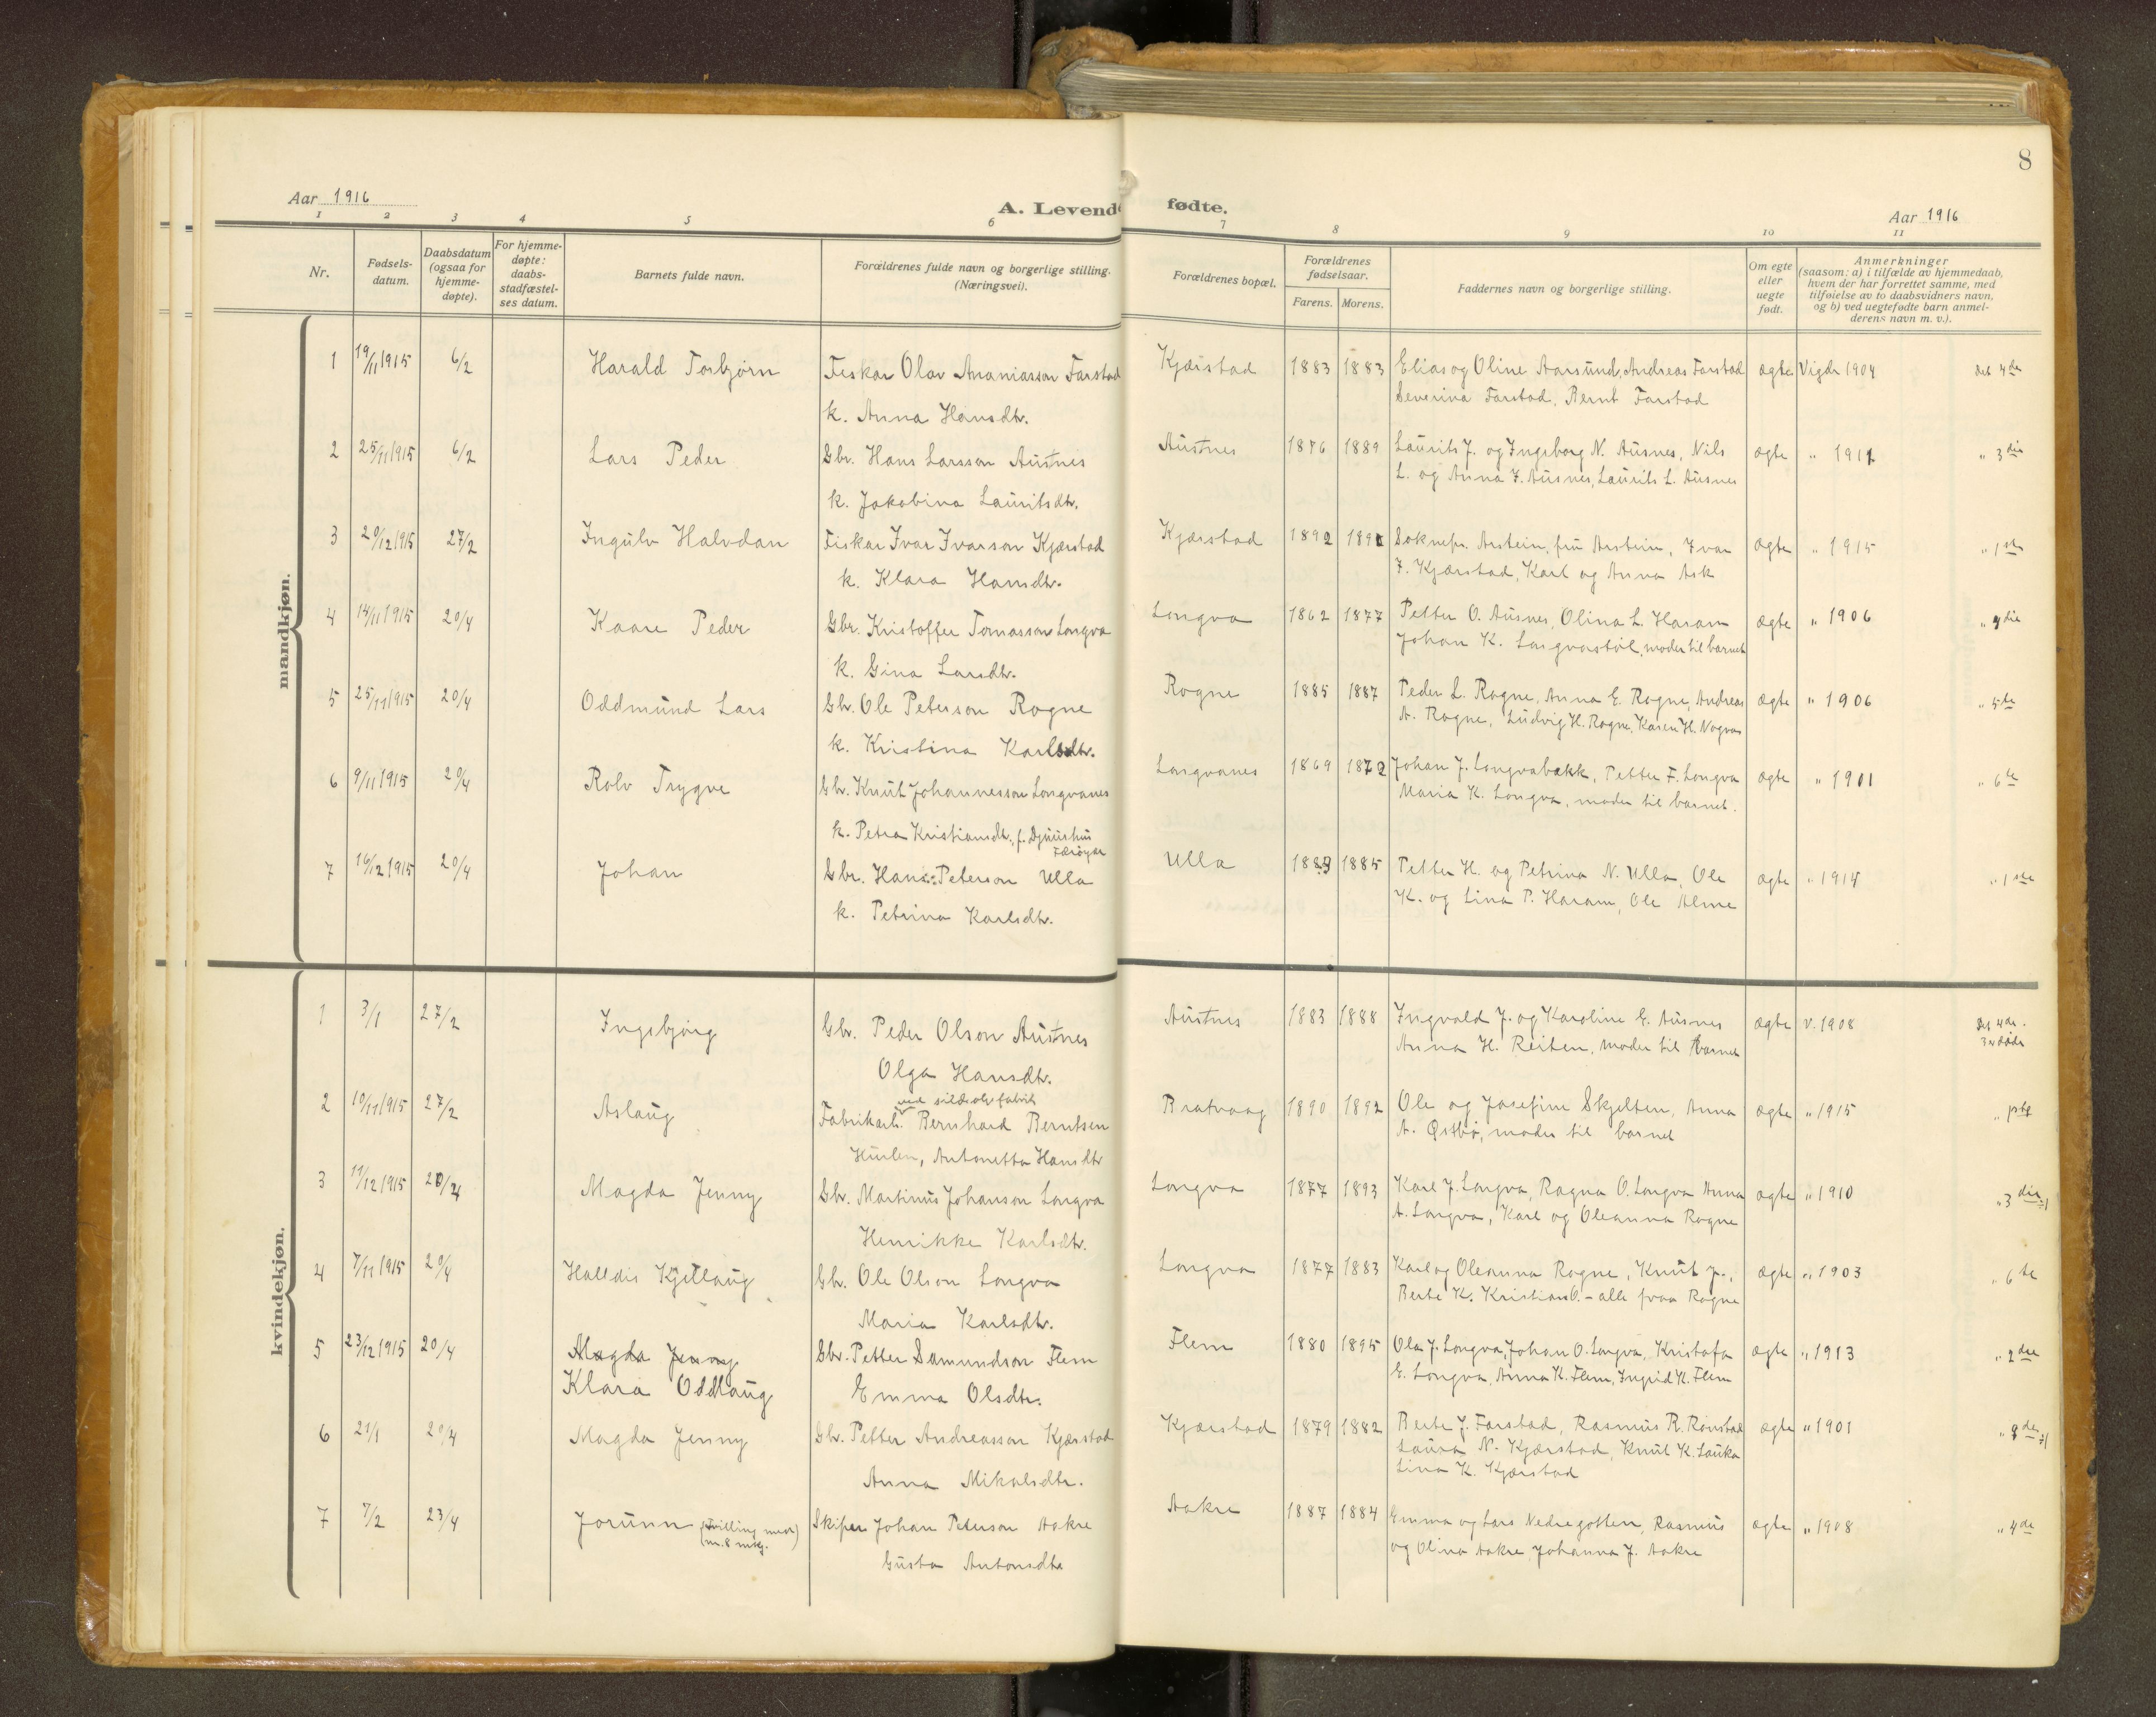 8
Aar 1916
A. Levende fødte.
Aar 1916
1 2 3 4 5 6 7 8 9 10 11
Nr.
Fødsels-
datum.
Daabsdatum
(ogsaa for
hjemme-
døpte).
For hjemme-
døpte:
daabs-
stadfæstel-
ses datum.
Barnets fulde navn.
Forældrenes fulde navn og borgerlige stilling.
(Næringsvei).
Forældrenes bopæl.
Forældrenes
fødselsaar.
Farens. Morens.
Faddernes navn og borgerlige stilling.
Om egte
eller
uegte
født.
Anmerkninger
(saasom: a) i tilfælde av hjemmedaab,
hvem der har forrettet samme, med
tilføielse av to daabsvidners navn,
og b) ved uegtefødte barn anmel-
derens navn m. v.).
mandkjøn.
1 19/11 1915 6/2 Harald Torbjørn Fiskar Olav Ananiasson Farstad Kjærstad 1883 1883 Elias og Oline Aarsund, Andreas Farstad ægte Vigde 1904 det 4de
k. Anna Hansdtr. Severina Farstad, Bernt Farstad
2 25/11 1915 6/2 Lars Peder Gbr. Hans Larsson Austnes Austnes 1876 1889 Laurits J. og Ingeborg N. Ausnes, Nils ægte " 1911 " 3die
k. Jakobina Lauritsdtr. L. og Anna J. Ausnes, Laurits L. Ausnes
3 20/12 1915 27/2 Ingulv Halvdan Fiskar Ivar Ivarson Kjærstad Kjærstad 1892 1891 Soknepr. Arstein, fru Arstein, Ivar ægte " 1915 " 1ste
k. Klara Hansdtr. J. Kjærstad, Karl og Anna Ask
4 14/11 1915 20/4 Kaare Peder Gbr. Kristoffer Tomasson Longva Longva 1862 1877 Petter O. Ausnes, Olina L. Haram ægte " 1906
k. Gina Larsdtr. Johan K. Longvastøl, moder til barnet
5 25/11 1915 20/4 Oddmund Lars Gbr. Ole Peterson Rogne Rogne 1885 1887 Peder L. Rogne, Anna E. Rogne, Andreas ægte " 1906 " 5te
k. Kristina Karlsdtr. A. Rogne, Ludvig H. Rogne, Karen H. Nogvas
6 9/11 1915 20/4 Rolv Trygve Gbr. Knut Johannesson Longvanes Longvanes 1869 1872 Johan J. Longvabakk, Petter F. Longva ægte " 1901 " 6te
k. Petra Kristiansdtr., f. Djuushus Maria K. Longva, moder til barnet.
Færøyar
7 16/12 1915 20/4 Johan Gbr. Hans Peterson Ulla Ulla 1889 1885 Petter H. og Petrina N. Ulla, Ole ægte " 1914 " 1ste
k. Petrina Karlsdtr. K. og Lina P. Haram, Ole Alme
kvindekjøn.
1 3/1 27/2 Ingebjørg Gbr. Peder Olson Austnes Austnes 1883 1888 Ingvald J. og Karoline E. Ausnes ægte V. 1908 det 4de.
Olga Hansdtr. Anna H. Reiten, moder til barnet 3 er døde
2 10/11 1915 27/2 Aslaug Fabrikarb. ved sildoljefabrik Bernhard Berntsen Bratvaag 1890 1892 Ole og Josefine Skjelten, Anna ægte " 1915
Hurlen, Antonetta Hansdtr A. Østbø, moder til barnet
3 11/12 1915 20/4 Magda Jenny Gbr. Martinus Johanson Longva Longva 1877 1893 Karl J. Longva, Ragna O. Longva Anna ægte " 1910 " 3die
Henrikke Karlsdtr. A. Longva, Karl og Oleanna Rogne
4 7/11 1915 20/4 Halldis Kjellaug Gbr. Ole Olson Longva Longva 1877 1883 Karl og Oleanna Rogne, Knut J., ægte " 1903 " 6te
Maria Karlsdtr. Berte K. Kristian O. - alle fraa Rogne
5 23/12 1915 20/4 Magda Jenny Gbr. Petter Samundson Flem Flem 1880 1895 Ola J. Longva, Johan O. Longva, Kristofa ægte " 1913 " 2die
Klara Oddlaug Emma Olsdtr. E. Longva, Anna K. Flem, Ingrid K. Flem
6 21/1 20/4 Magda Jenny Gbr. Petter Andreasson Kjærstad Kjærstad 1879 1882 Berte J. Farstad, Rasmus R. Rønstad ægte " 1901
Anna Mikalsdtr. Laura N. Kjærstad, Knut K. Lauka
Lina K. Kjærstad
7 7/2 23/4 Jorunn (tvilling med Skiper Johan Peterson Aakre Aakre 1887 1884 Emma og Lars Nedregotten, Rasmus ægte " 1908 " 4de
nr. 8 mkj.) Gusta Antonsdtr og Olina Aakre Johanna J. Aakre